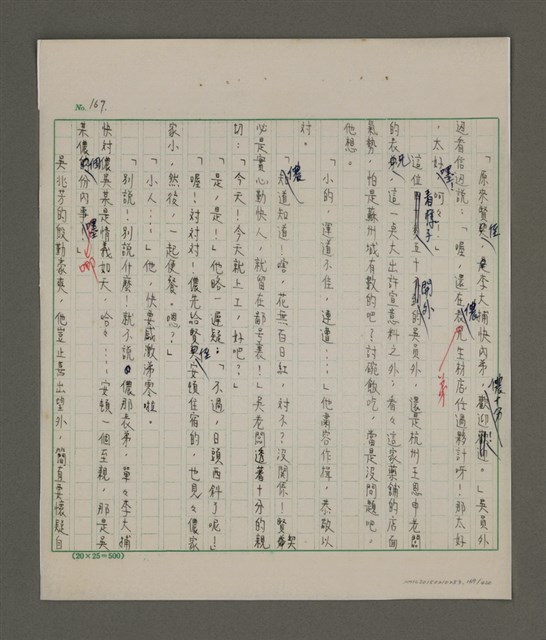 No. 167.
「原來賢姪,是李大捕快內弟,歡迎歡迎。」吳員外
過看信過說:「喔,還在儂兄生材店任過夥計呀!那太好
,太好,呵々!」
這位看樣子五十開外的吳員外,儂是杭州王恩中老闆
的表兄,這一點大出許宣意料之外;看々這家藥鋪的店面
氣勢,怕是蘇州城有數的吧?討碗飯吃,當是沒問題吧。
他想。
「小的,運道不佳,遭遭…」他肅容作揖,恭敬以
對。
「儂知道知道!唅,花無百日紅,對不?沒關係!賢契
必是實心勤快人,就留在鄙号裏!」吳老闆透著十分的親
切:「今天!今天就上工,好吧?」
「是,是!」他略一遲疑:「不過,日頭西斜了呢!」
「喔!对对对!儂先給賢姪安頓住宿的,也見々儂家
家小,然後,一起便餐。嗯?」
「小人…」他,快要感激涕零啦。
「別說!別說什麼!就不說儂那表弟,單々李大捕
快对儂吳某是情義如天,哈々!…安頓一個至親,那是吳
某儂份內事!」
吳兆芳的殷勤豪爽,他豈止喜出望外,簡直要懷疑自
(20×25=500)